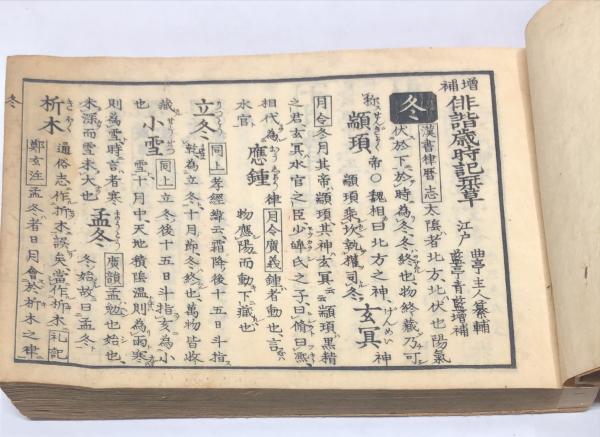 増補俳諧歳時記栞草
江戸
曲亭主人纂輯
藍亭青藍増補
冬
漢書律暦志 太陰者北方北伏也陽氣
伏於下於時為冬冬終也物終藏乃可
称
顓頊
帝○魏相曰北方之神
顓頊乘坎執權司冬
玄冥
神
月令 冬月其帝顓頊其神玄冥云云顓頊黒精
之君玄冥水官之臣少皞氏之子曰脩曰熙
相代為
水官
應鍾
律 月令廣義 鍾者動也言
物應陽而動下藏也
立冬
同上 孝經緯云霜降後十五日斗指
乾為立冬十月節冬終也萬物皆收
藏
也
小雪
同上 立冬後十五日斗指亥為小
雪十月中天地積陰温則為雨寒
則為雪時言者寒
未深而雪未大也
孟冬
廣韻 孟勉也始也
冬始故曰孟冬
析木
通俗志作折木誤矣當作析木 礼記
鄭玄注 孟冬者日月會於析木之津
冬